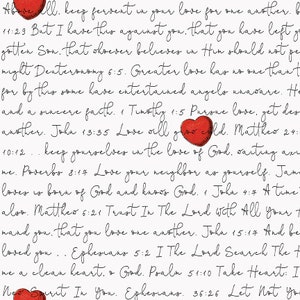 Above all, keep fervent in your love for one another.
11:29 But I have this against you, that you have left yo
gotten Son, that whoever believes in Him should not pe
night Deuteronomy 6:5. Greater love has no one than t
for by this some have entertained angels unaware. He
and a sincere faith. 1 Timothy 1:5 Pursue love, yet des
another. John 13:35 Love will grow cold. Matthew 24:
10:12 ... keep yourselves in the love of God, waiting an
me. Proverbs 8:17 Love your neighbor as yourself. Jam
loves is born of God and knows God. 1 John 4:7 A time
also. Matthew 6:21 Trust In The Lord With All Your
mand you, that you love one another. John 15:17 And be
loved you... Ephesians 5:2 I The Lord Search The H
me a clean heart, O God. Psalm 51:10 Take Heart I
New Spirit In You. Ephesians 36:26 Let Not Yo